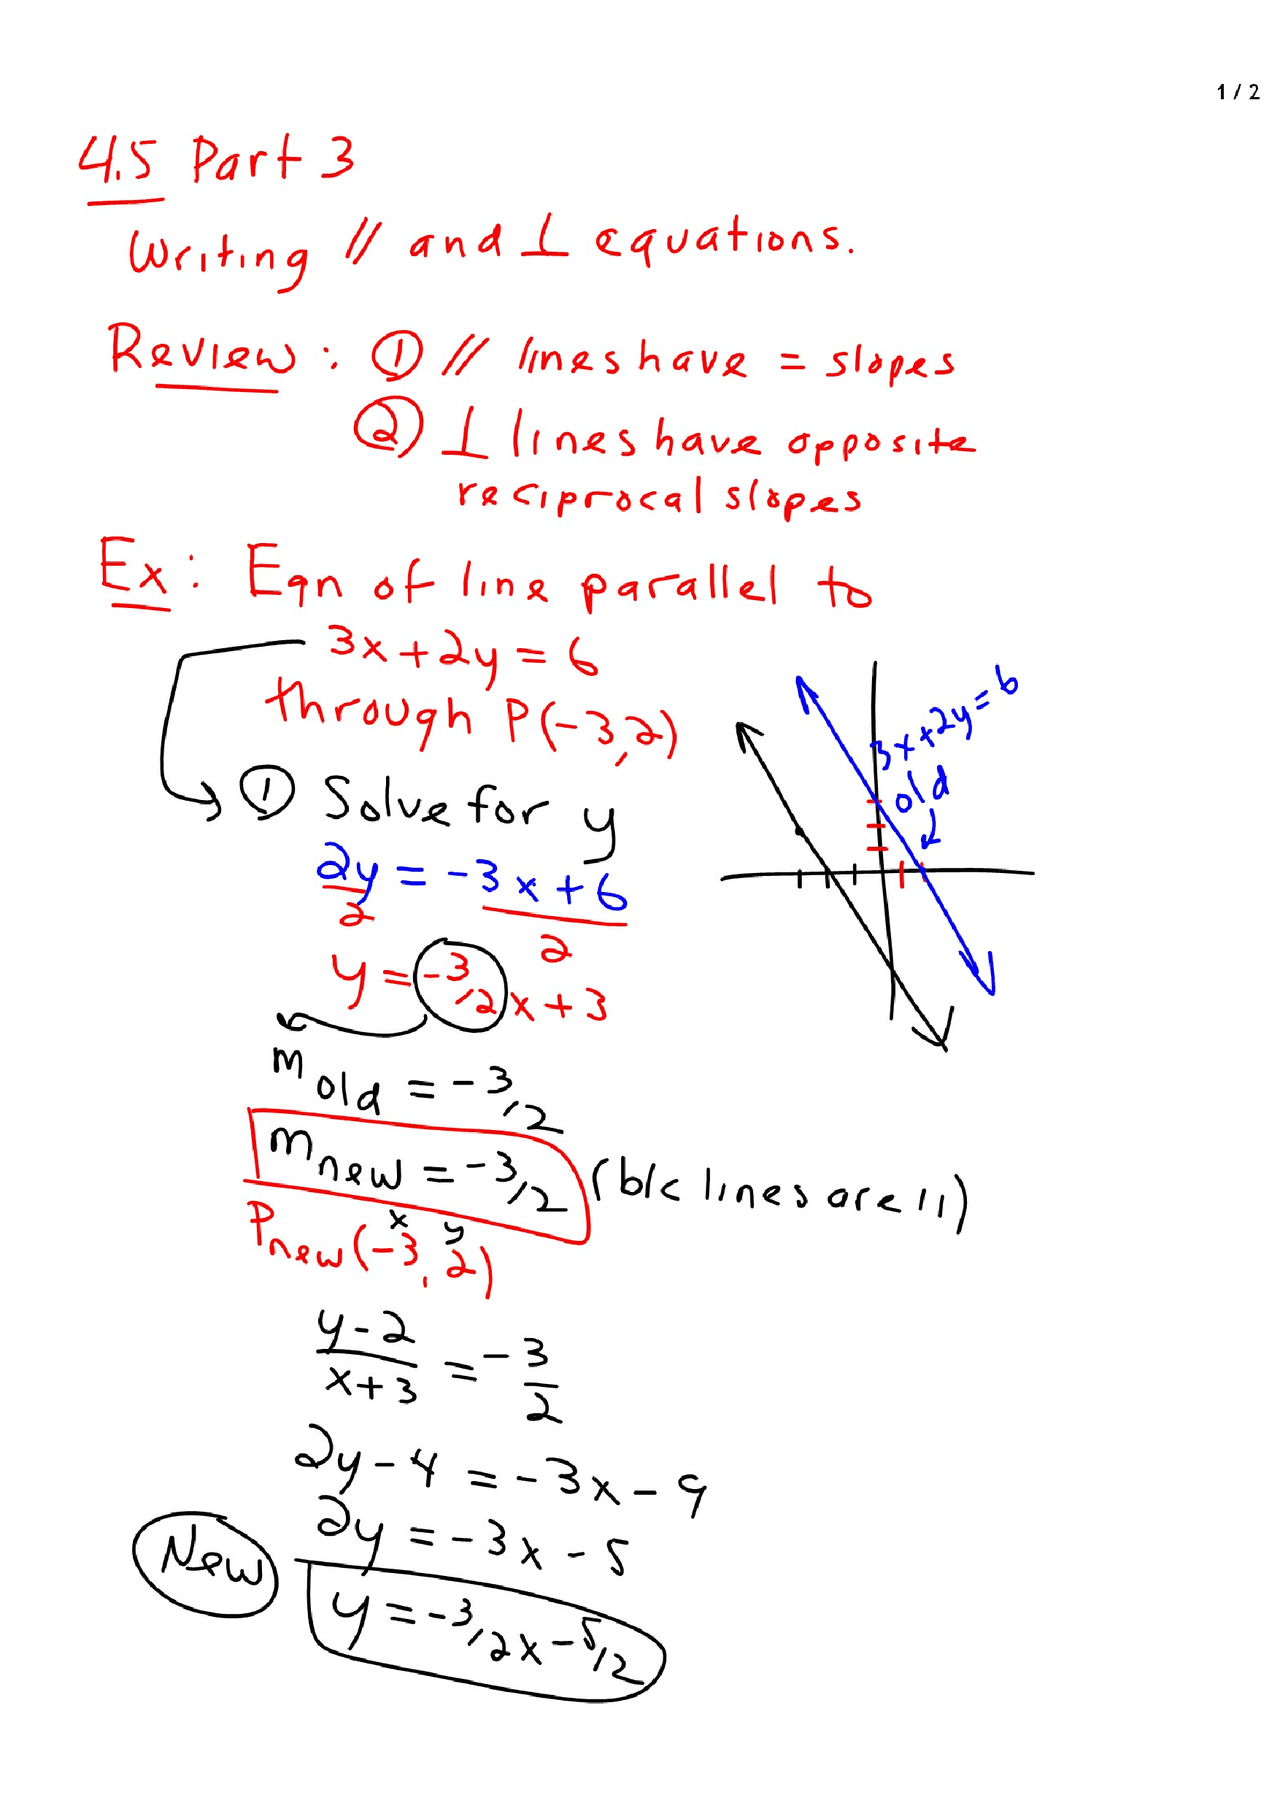 1 / 2
4.5 Part 3
Writing // and ⊥ equations.
Review : ① // lines have = slopes
② ⊥ lines have opposite
reciprocal slopes
Ex : Eqn of line parallel to
3x + 2y = 6
through P(-3,2)
① Solve for y
2y/2 = -3x + 6/2
y = -3/2 x + 3
m old = -3/2
m new = -3/2 (b/c lines are ||)
x y
P new (-3, 2)
y - 2 / x + 3 = - 3/2
2y - 4 = -3x - 9
2y = -3x - 5
New y = -3/2 x - 5/2
3x + 2y = 6
old